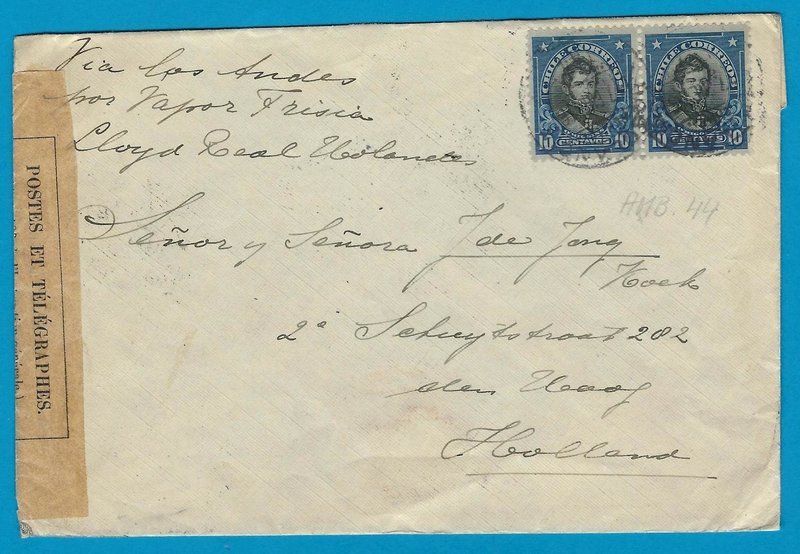 Via los Andes
por Vapor Frisia
Lloyd Real Holandes
CHILE CORREOS
10 CENTAVOS 10
CHILE CORREOS
10 CENTAVOS 10
AMB. 44
Señor y Señora J de Jong
Koek
2ª Schuytstraat 282
den Haag
Holland
POSTES ET TÉLÉGRAPHES.